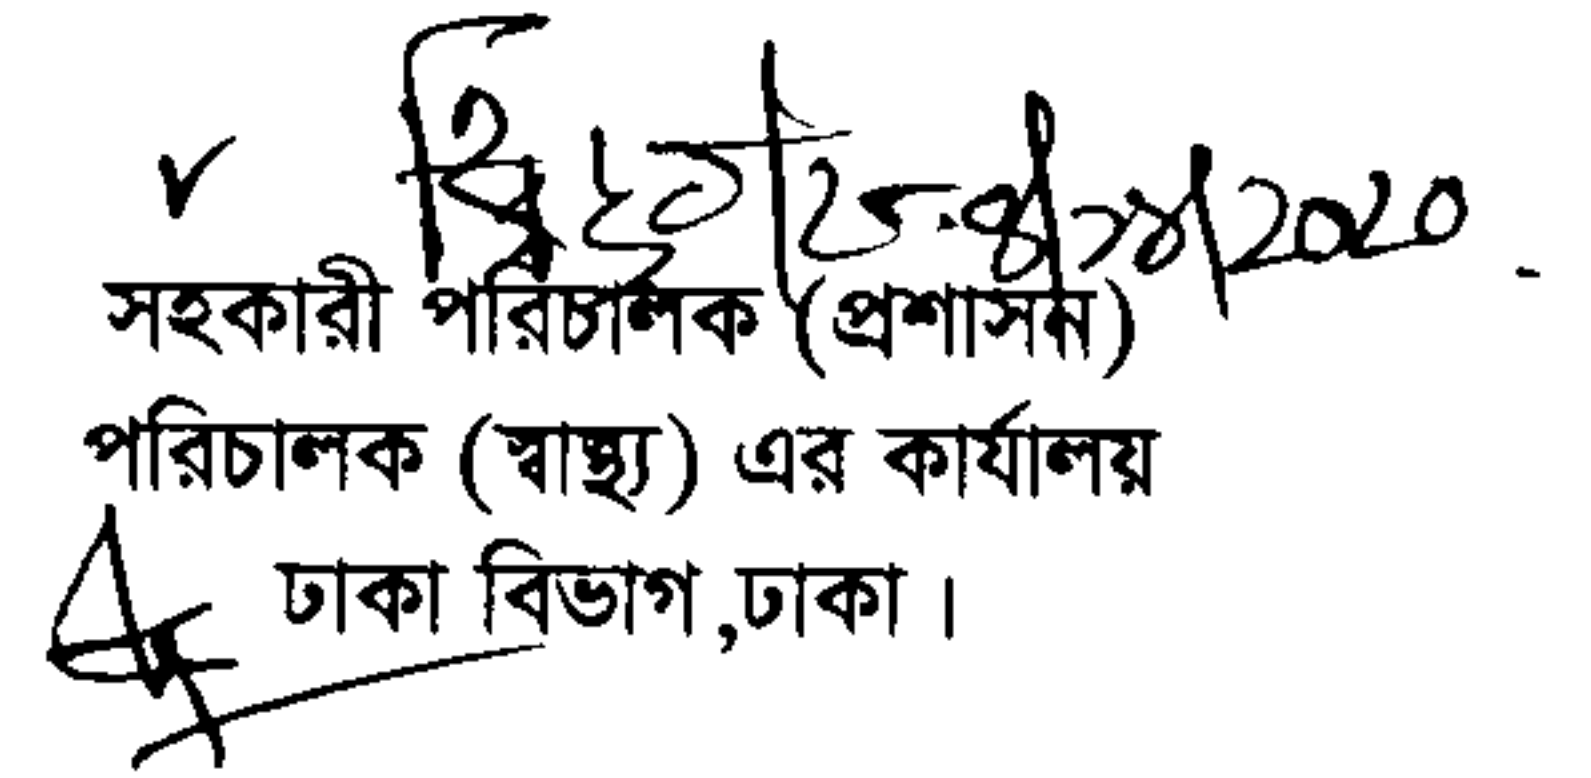 সহকারী পরিচালক (প্রশাসন)
পরিচালক (স্বাস্থ্য) এর কার্যালয়
ঢাকা বিভাগ ,ঢাকা ।